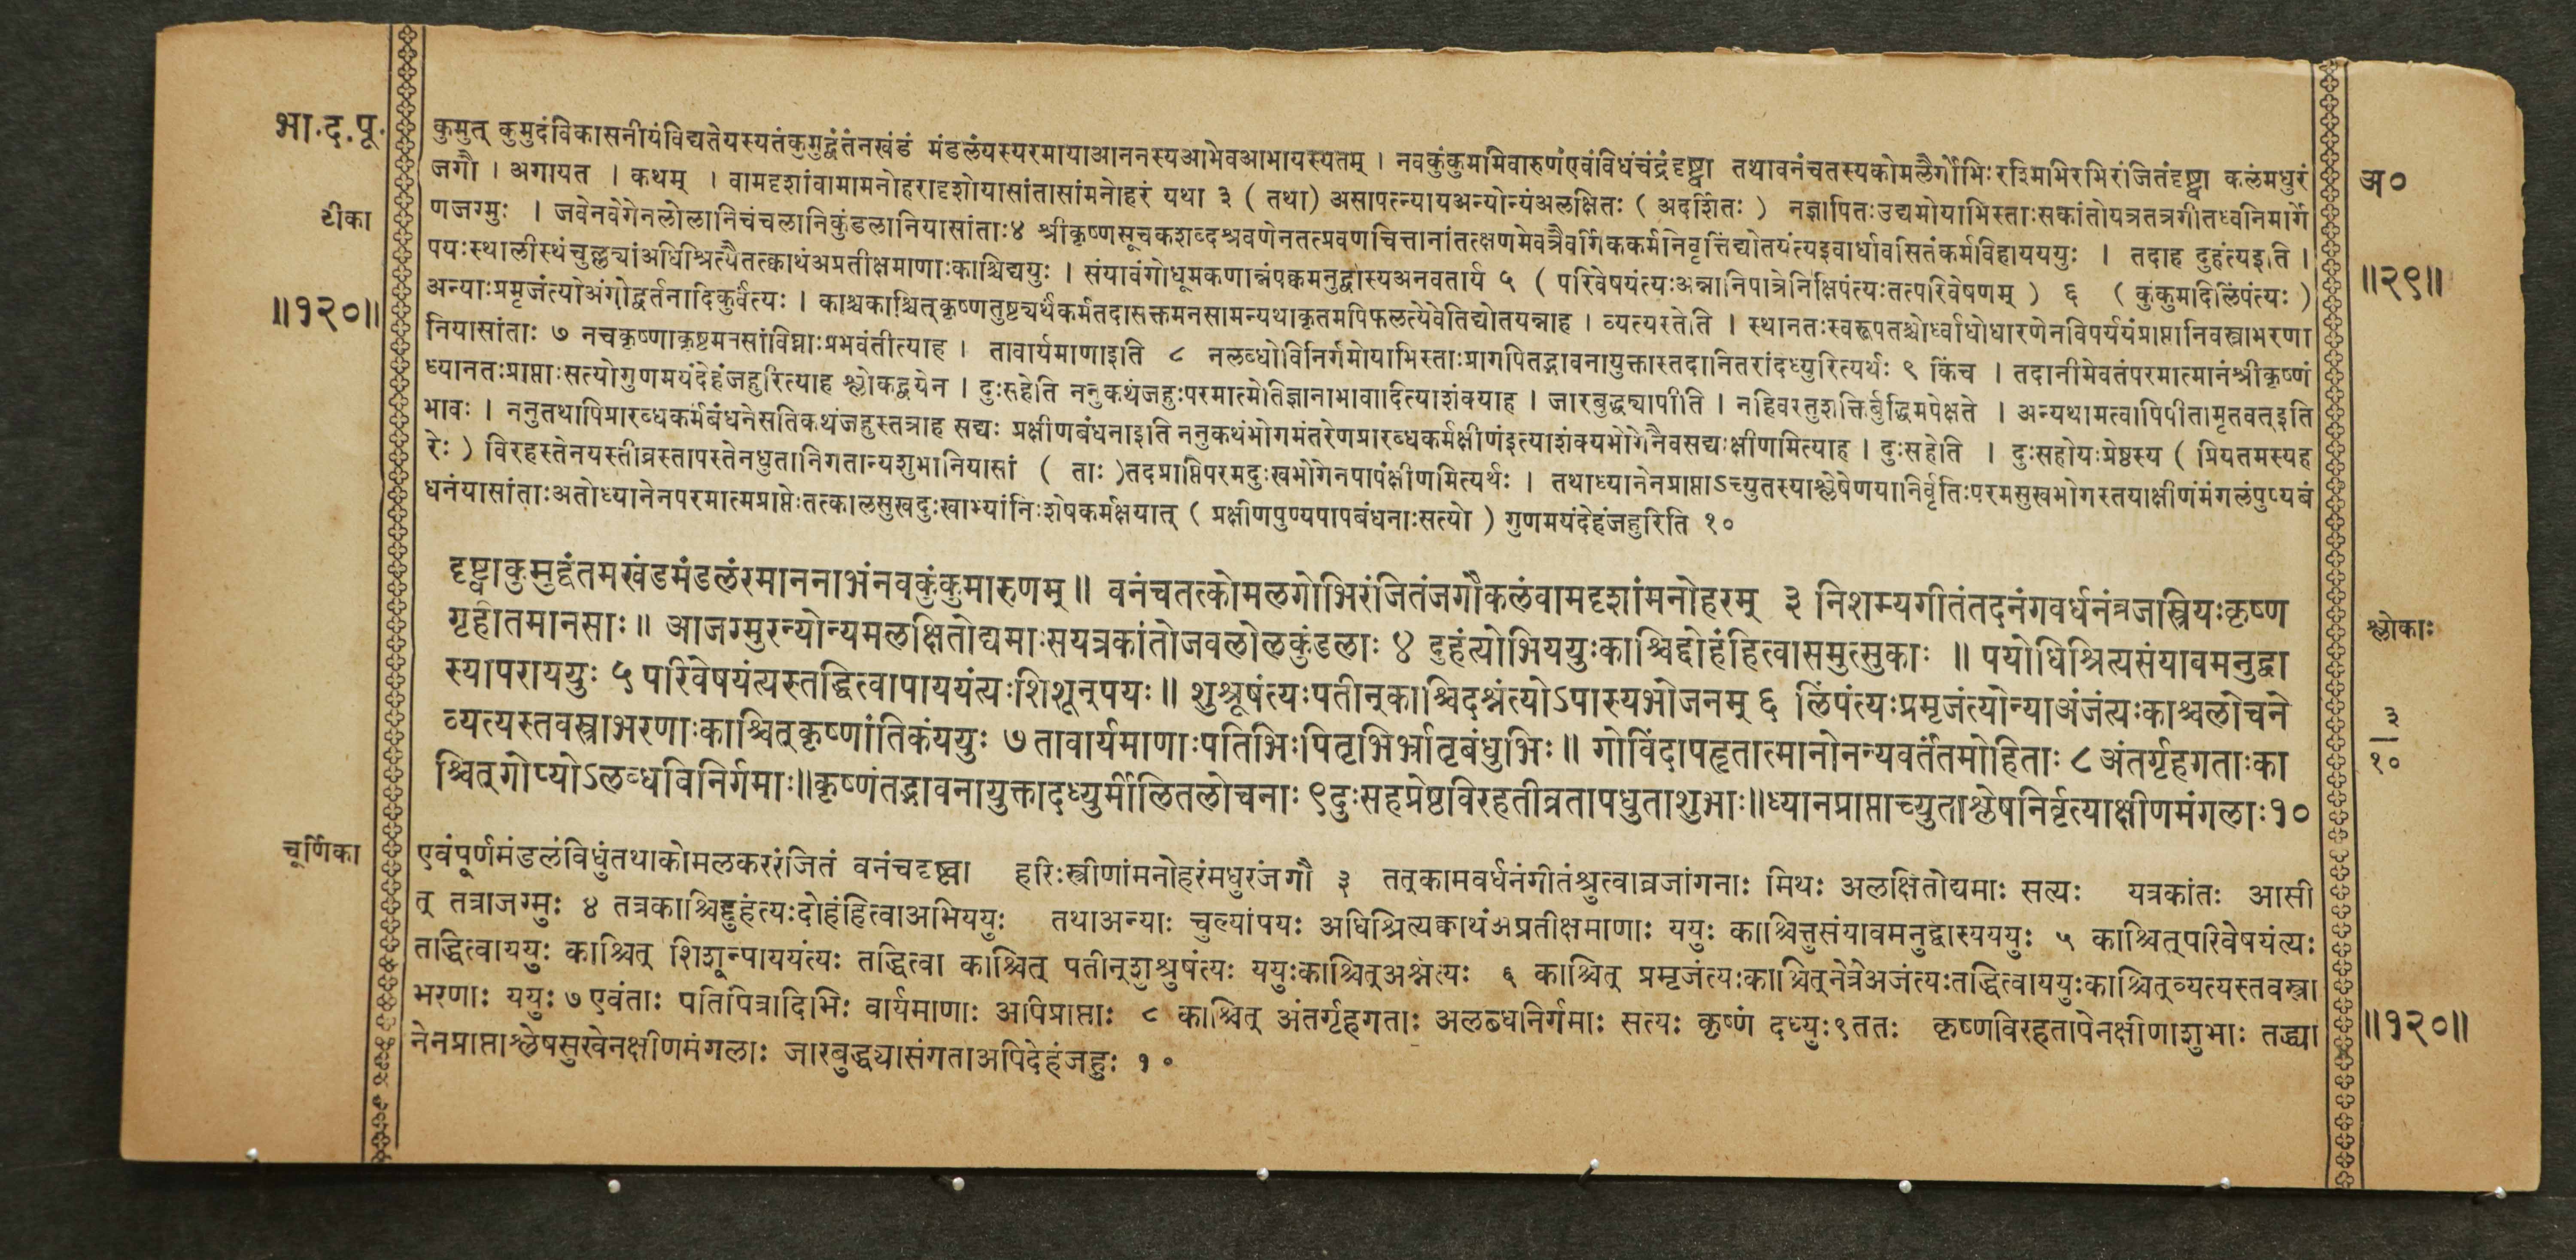 भा.द.पू.
टीका
॥१२०॥
अ०
॥२९॥
कुमुत् कुमुदंविकासनीयंविद्यतेयस्यतंकुमुद्वंतंनखंडं मंडलंयस्यरमायाआननस्यआभेवआभायस्यतम् । नवकुंकुममिवारुणंएवंविधंचंद्रंदृष्ट्वा तथावनंचतस्यकोमलैर्गोभिःरश्मिभिरभिरंजितंदृष्ट्वा कलंमधुरं
जगौ । अगायत । कथम् । वामदृशांवामामनोहरादृशोयासांतासांमनोहरं यथा ३ ( तथा) असापत्न्यायअन्योन्यंअलक्षितः ( अदर्शितः ) नज्ञापितःउद्यमोयाभिस्ताःसकांतोयत्रतत्रगीतध्वनिमार्गे
णजग्मुः । जवेनवेगेनलोलानिचंचलानिकुंडलानियासांताः४ श्रीकृष्णसूचकशब्दश्रवणेनतत्प्रवणचित्तानांतत्क्षणमेवत्रैवर्गिककर्मनिवृत्तिंद्योतयंत्यइवार्धावसितंकर्मविहायययुः । तदाह दुहंत्यइति ।
पयःस्थालीस्थंचुल्ल्यांअधिश्रित्यैतत्क्वाथंअप्रतीक्षमाणाःकाश्चिद्ययुः । संयावंगोधूमकणान्नंपक्वमनुद्वास्यअनवतार्य ५ ( परिवेषयंत्यःअन्नानिपात्रेनिक्षिपंत्यःतत्परिवेषणम् ) ६ ( कुंकुमादिलिंपंत्यः )
अन्याःप्रमृजंत्योअंगोद्वर्तनादिकुर्वत्यः । काश्चकाश्चित्कृष्णतुष्ट्यर्थंकर्मतदासक्तमनसामन्यथाकृतमपिफलत्येवेतिद्योतयन्नाह । व्यत्यस्तेति । स्थानतःस्वरूपतश्चोर्ध्वाधोधारणेनविपर्ययंप्राप्तानिवस्त्राभरणा
नियासांताः ७ नचकृष्णाकृष्टमनसांविघ्नाःप्रभवंतीत्याह । तावार्यमाणाइति ८ नलब्धोविनिर्गमोयाभिस्ताःप्रागपितद्भावनायुक्तास्तदानितरांदध्युरित्यर्थः ९ किंच । तदानीमेवतंपरमात्मानंश्रीकृष्णं
ध्यानतःप्राप्ताःसत्योगुणमयंदेहंजहुरित्याह श्लोकद्वयेन । दुःसहेति ननुकथंजहुःपरमात्मेतिज्ञानाभावादित्याशंक्याह । जारबुद्ध्यापीति । नहिवस्तुशक्तिर्बुद्धिमपेक्षते । अन्यथामत्वापिपीतामृतवत्इति
भावः । ननुतथापिप्रारब्धकर्मबंधनेसतिकथंजहुस्तत्राह सद्यः प्रक्षीणबंधनाइति ननुकथंभोगमंतरेणप्रारब्धकर्मक्षीणंइत्याशंक्यभोगेनैवसद्यःक्षीणमित्याह । दुःसहेति । दुःसहोयःप्रेष्ठस्य ( प्रियतमस्यह
रेः ) विरहस्तेनयस्तीव्रस्तापस्तेनधुतानिगतान्यशुभानियासां ( ताः )तदप्राप्तिपरमदुःखभोगेनपापंक्षीणमित्यर्थः । तथाध्यानेनप्राप्ताऽच्युतस्याश्लेषेणयानिर्वृतिःपरमसुखभोगस्तयाक्षीणंमंगलंपुण्यबं
धनंयासांताःअतोध्यानेनपरमात्मप्राप्तेःतत्कालसुखदुःखाभ्यांनिःशेषकर्मक्षयात् ( प्रक्षीणपुण्यपापबंधनाःसत्यो ) गुणमयंदेहंजहुरिति १०
दृष्ट्वाकुमुद्वंतमखंडमंडलंरमाननाभंनवकुंकुमारुणम् ॥ वनंचतत्कोमलगोभिरंजितंजगौकलंवामदृशांमनोहरम् ३ निशम्यगीतंतदनंगवर्धनंव्रजस्त्रियःकृष्ण
गृहीतमानसाः ॥ आजग्मुरन्योन्यमलक्षितोद्यमाःसयत्रकांतोजवलोलकुंडलाः ४ दुहंत्योभिययुःकाश्चिद्दोहंहित्वासमुत्सुकाः ॥ पयोधिश्रित्यसंयावमनुद्वा
स्यापराययुः ५ परिवेषयंत्यस्तद्धित्वापाययंत्यःशिशून्पयः ॥ शुश्रूषंत्यःपतीन्काश्चिदश्नंत्योऽपास्यभोजनम् ६ लिंपंत्यःप्रमृजंत्योन्याअंजंत्यःकाश्चलोचने
व्यत्यस्तवस्त्राभरणाःकाश्चित्कृष्णांतिकंययुः ७ तावार्यमाणाःपतिभिःपितृभिर्भ्रातृबंधुभिः ॥ गोविंदापहृतात्मानोनन्यवर्तंतमोहिताः ८ अंतर्गृहगताःका
श्चित्गोप्योऽलब्धविनिर्गमाः॥कृष्णंतद्भावनायुक्तादध्युर्मीलितलोचनाः ९दुःसहप्रेष्ठविरहतीव्रतापधुताशुभाः॥ध्यानप्राप्ताच्युताश्लेषनिर्वृत्याक्षीणमंगलाः१०
श्लोकाः
३
१०
चूर्णिका
एवंपूर्णमंडलंविधुंतथाकोमलकररंजितं वनंचदृष्ट्वा हरिःस्त्रीणांमनोहरंमधुरंजगौ ३ तत्कामवर्धनंगीतंश्रुत्वाव्रजांगनाः मिथः अलक्षितोद्यमाः सत्यः यत्रकांतः आसी
त् तत्राजग्मुः ४ तत्रकाश्चिद्दुहंत्यःदोहंहित्वाअभिययुः तथाअन्याः चुल्यांपयः अधिश्रित्यक्वाथंअप्रतीक्षमाणाः ययुः काश्चित्तुसंयावमनुद्वास्यययुः ५ काश्चित्परिवेषयंत्यः
तद्धित्वाययुः काश्चित् शिशून्पाययंत्यः तद्धित्वा काश्चित् पतीन्शुश्रुषंत्यः ययुःकाश्चित्अश्नंत्यः ६ काश्चित् प्रमृजंत्यःकाश्चित्नेत्रेअजंत्यःतद्धित्वाययुःकाश्चित्व्यत्यस्तवस्त्रा
भरणाः ययुः ७ एवंताः पतिपित्रादिभिः वार्यमाणाः अपिप्राप्ताः ८ काश्चित् अंतर्गृहगताः अलब्धनिर्गमाः सत्यः कृष्णं दध्युः९ततः कृष्णविरहतापेनक्षीणाशुभाः तद्ध्या
नेनप्राप्ताश्लेषसुखेनक्षीणमंगलाः जारबुद्ध्यासंगताअपिदेहंजहुः १०
॥१२०॥